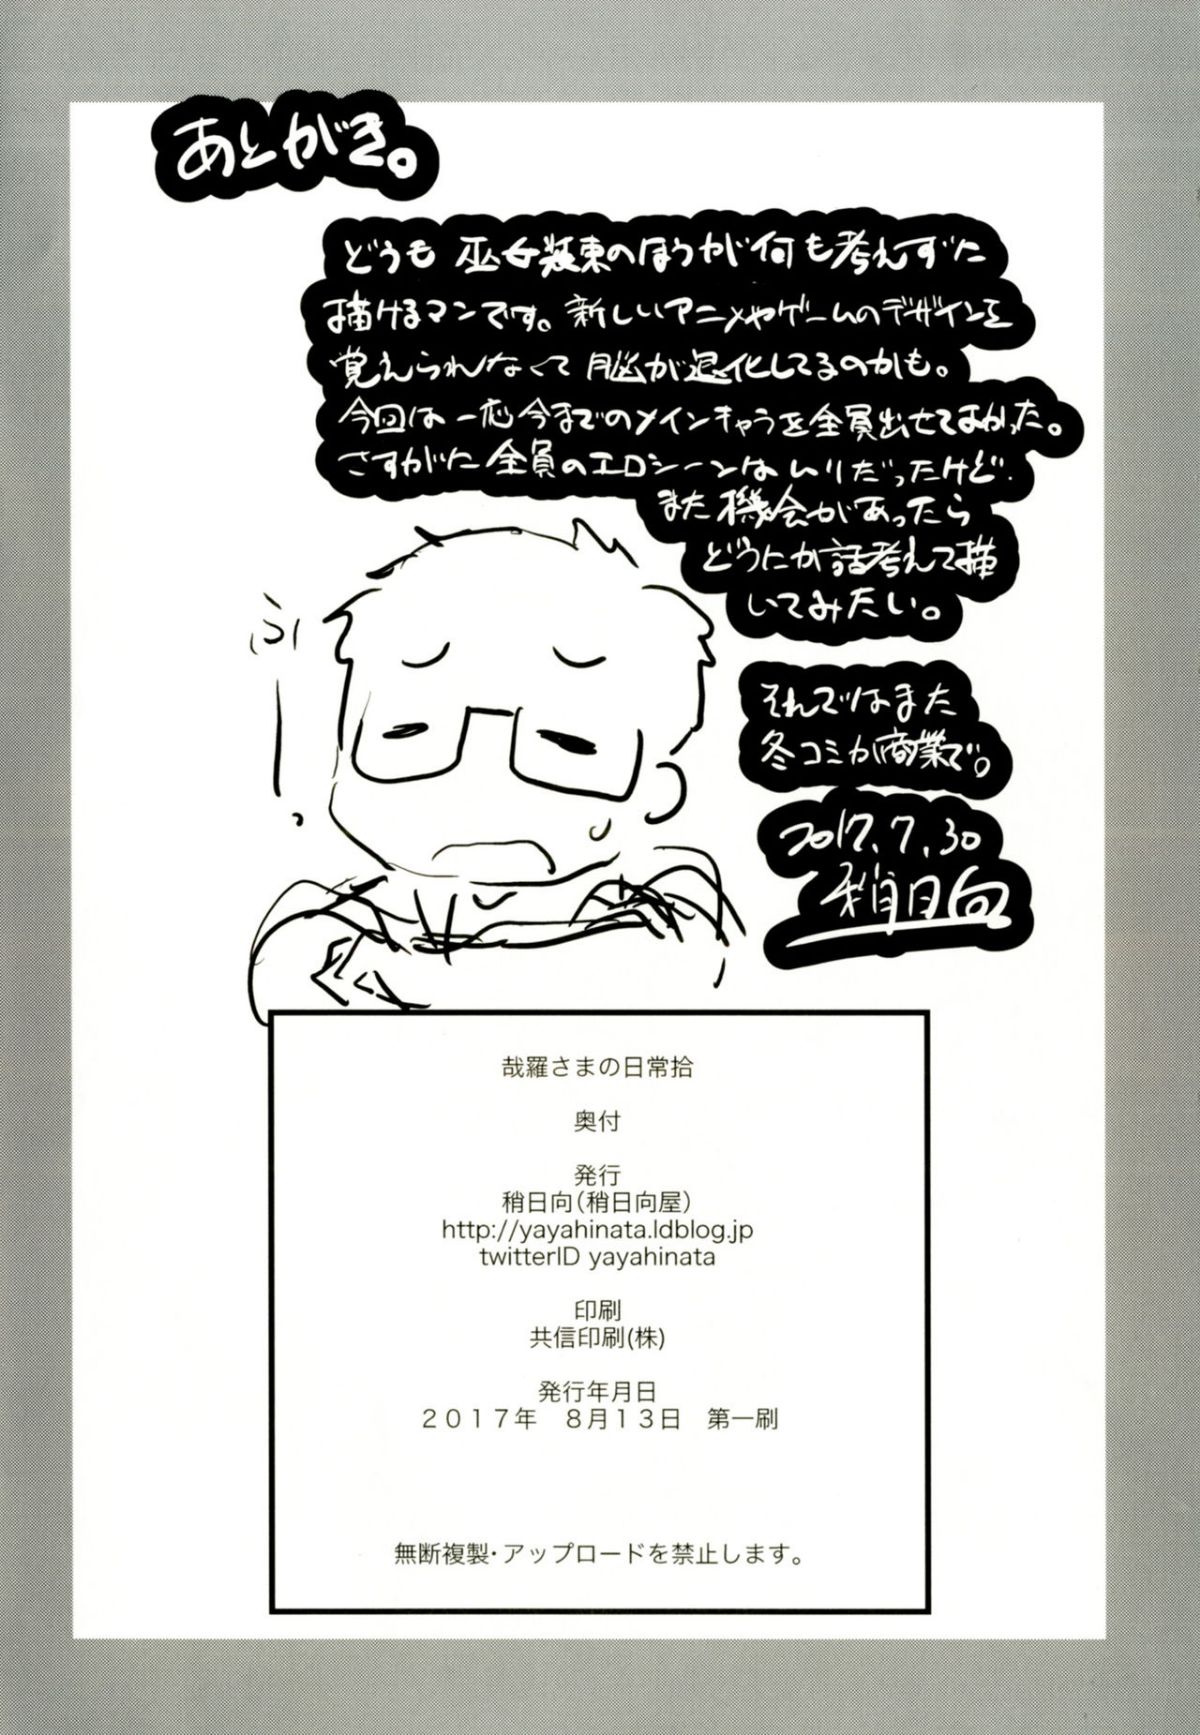 あとがき。
どうも 巫女装束のほうが何も考えずに
描けるマンです。新しいアニメやゲームのデザインを
覚えられなくて脳が退化してるのかも。
今回は一応今までのメインキャラを全員出せてよかった。
さすがに全員のエロシーンはムリだったけど、
また機会があったら
どうにか話考えて描
いてみたい。
ふぅ
それではまた
冬コミか商業で。
2017.7.30
稍日向
哉羅さまの日常拾
奥付
発行
稍日向(稍日向屋)
http://yayahinata.ldblog.jp
twitterID yayahinata
印刷
共信印刷(株)
発行年月日
2017年 8月13日 第一刷
無断複製・アップロードを禁止します。